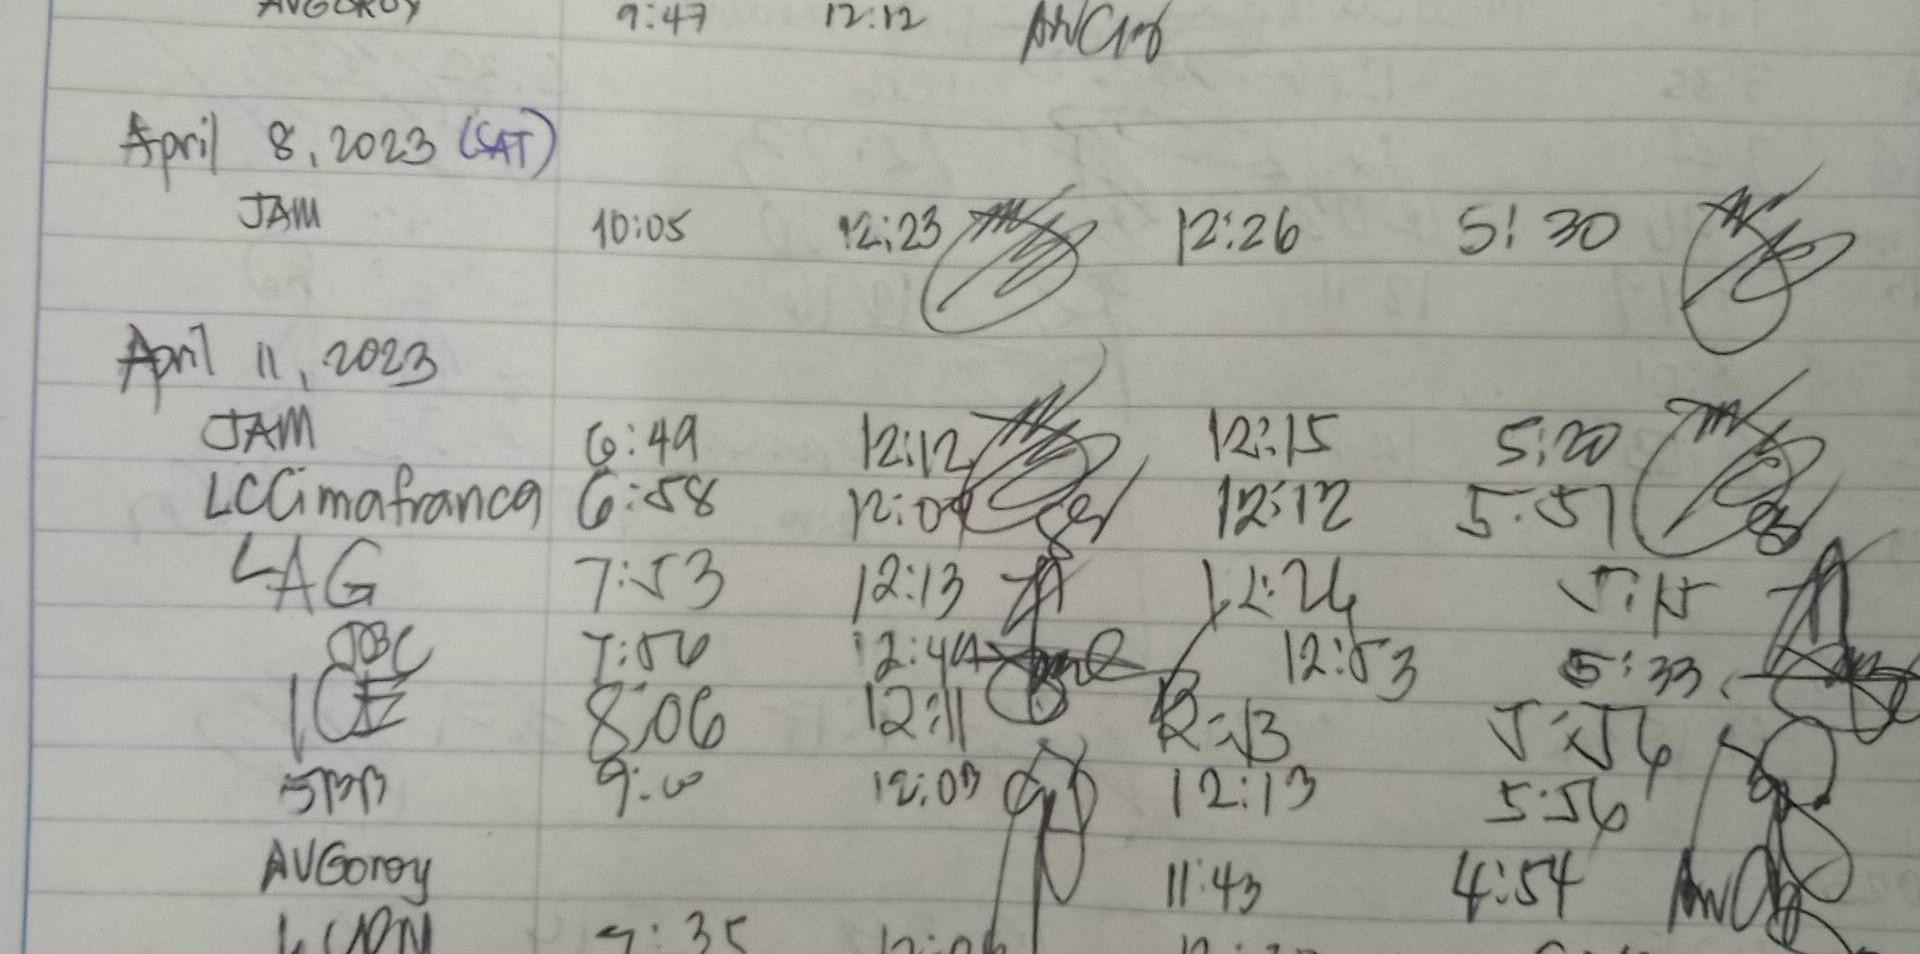 AVGOROY 9:47 12:12
April 8, 2023 (SAT)
JAM 10:05 12:23 12:26 5:30
April 11, 2023
JAM 6:49 12:12 12:15 5:20
LCCimafranca 6:58 12:09 12:12 5:57
LAG 7:53 12:13 12:26 5:15
JBC 7:56 12:49 12:53 5:33
8:06 12:11 12:13 5:56
9:00 12:03 12:13 5:56
AVGoroy 11:43 4:54
7:35